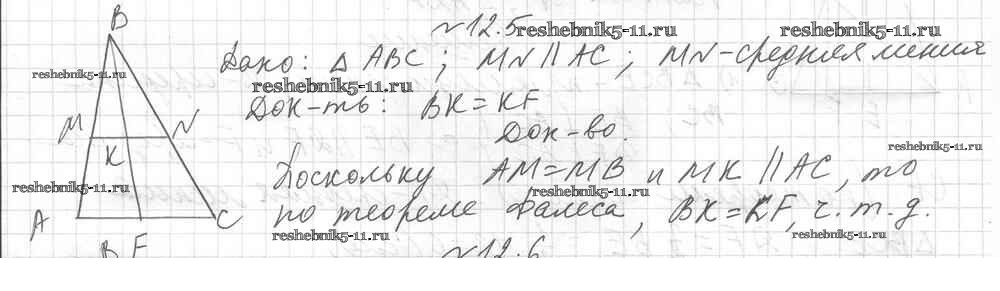 N12.5
reshebnik5-11.ru
reshebnik5-11.ru
B
Дано: Δ ABC; MN || AC; MN - средняя линия
reshebnik5-11.ru
reshebnik5-11.ru
Док-ть: BK = KF
Док-во.
M
N
K
reshebnik5-11.ru
Поскольку AM = MB и MK || AC, то
reshebnik5-11.ru
reshebnik5-11.ru
по теореме Фалеса, BK = KF, ч.т.д.
A
F
C
reshebnik5-11.ru
reshebnik5-11.ru
N12.6